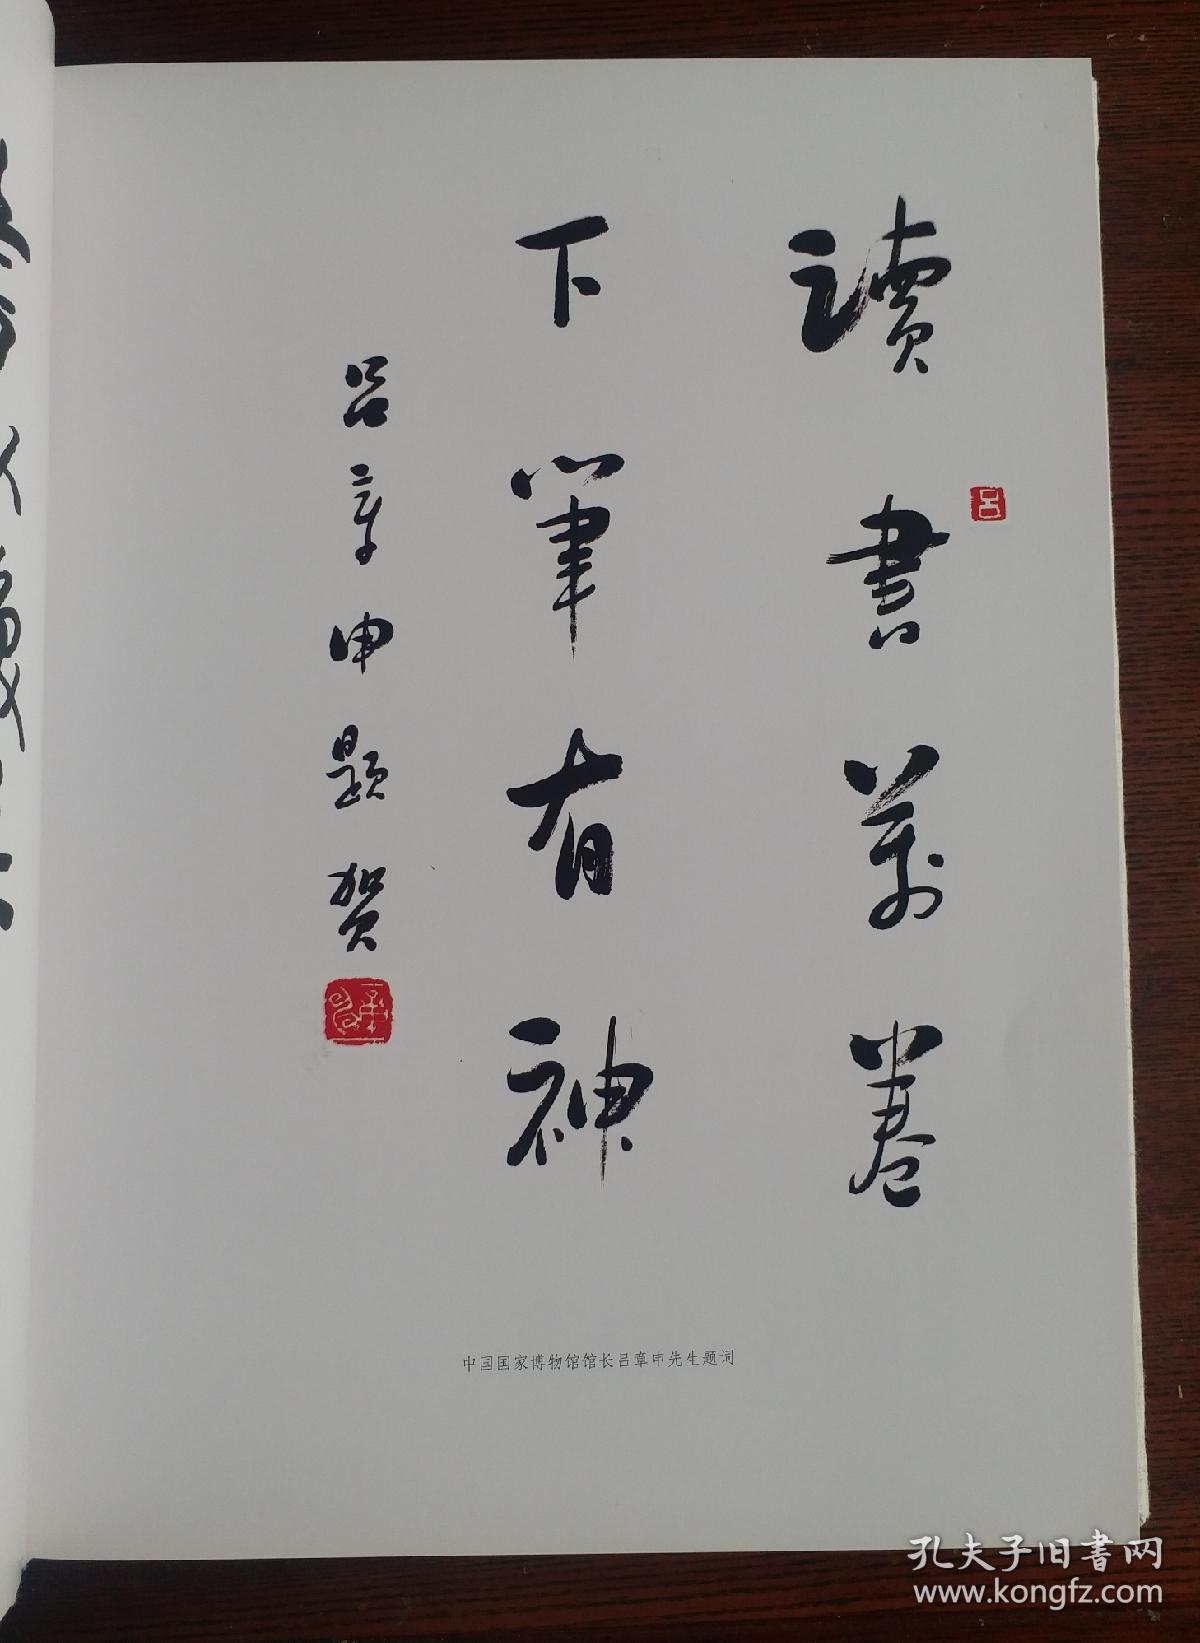 讀書萬卷
下筆有神
吕章申題贺
吕
中国国家博物馆馆长吕章申先生题词
孔夫子旧書网
www.kongfz.com